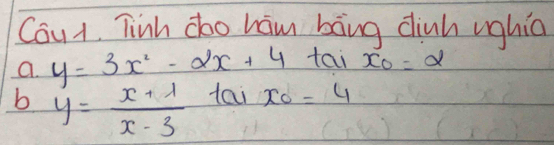 Câu 1. Tính đạo hàm bằng định nghĩa
a. y = 3x² - 2x + 4 tại x₀ = 2
b y = (x + 1)/(x - 3) tại x₀ = 4